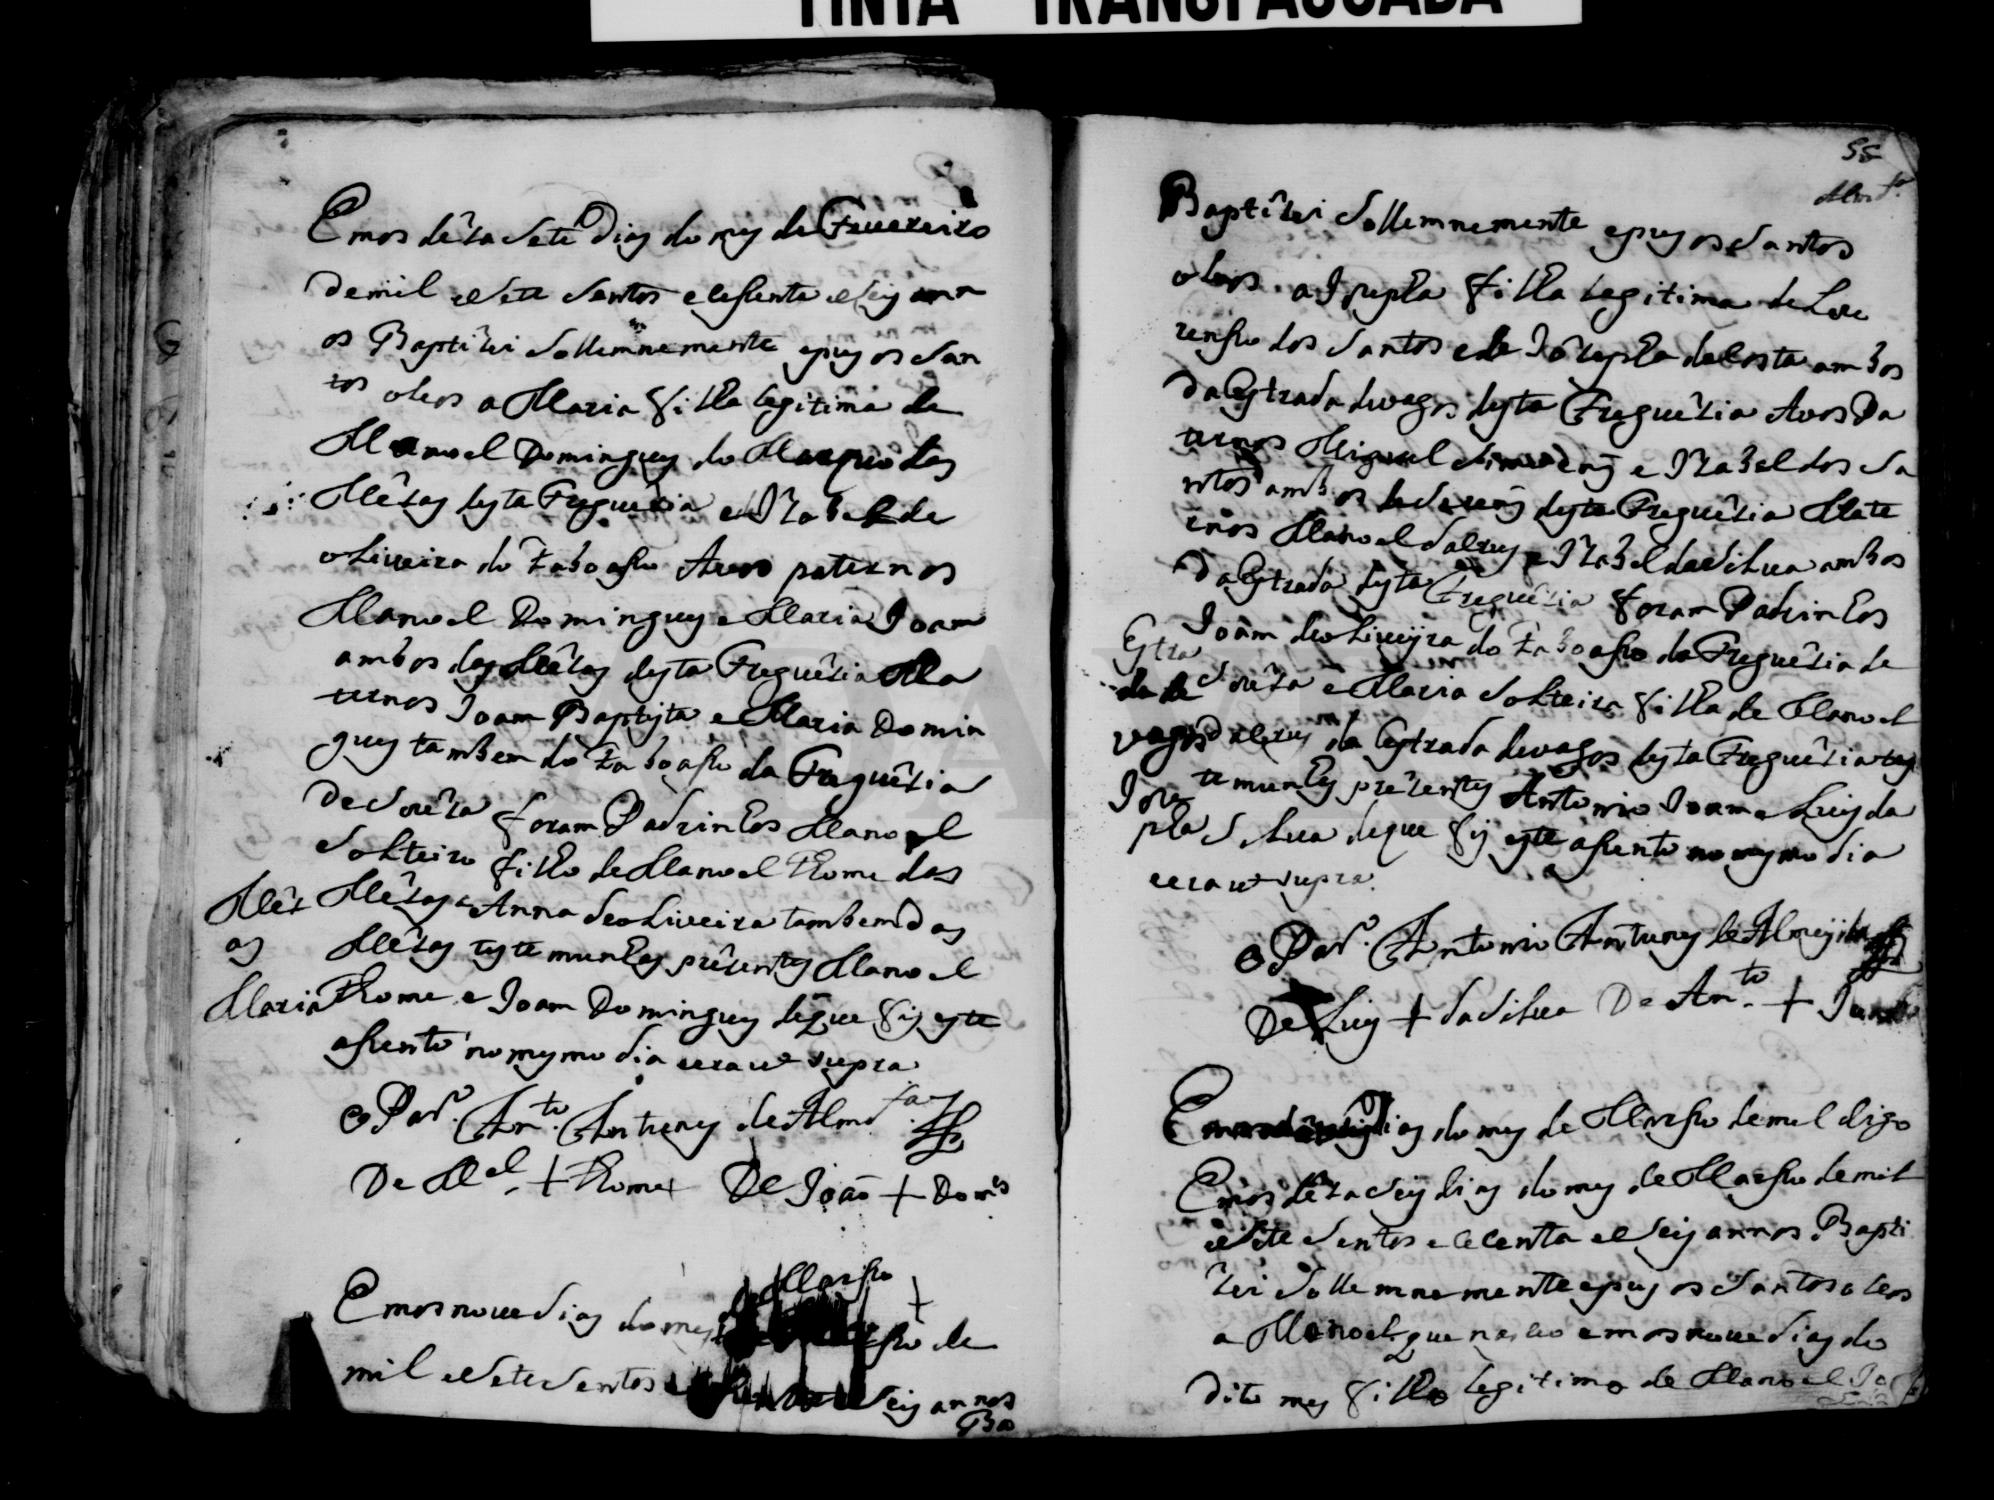 TINTA TRANSPASSADA
Emos deza Sete Dias do mes de Feuereiro
de mil e Sete Sentos e sesenta e Seis ann
os Baptizei Sollemnemente e pus os San
tos oleos a Maria filha legitima de
Manoel Domingues do Marquo das
Mêzas desta Freguezia e Izabel de
oLiveira do Taboasso Auos paternos
Manoel Domingues e Maria Joam
ambos das Mêzas desta Freguêzia Ma
ternos Joam Baptista e Maria Domin
gues tambem do Taboasso da Freguêzia
de Soêza foram Padrinhos Manoel
Solteiro filho de Manoel Thome das
Mêzas e Anna de oLiveira tambem das
Mêzas testemunhas prezentes Manoel
Thome e Joam Domingues de que fis este
asento no mesmo dia e era ut supra
Mêz
as
Maria
o Par.º Ant.to Antunes de Almd.a
De M.el + Thome De João + Dom.es
Emos noue dias do mes Marso
so de
mil e Sete Sentos e Seis annos
Ba
55
Almd.a
Baptizei Sollemnemente e pus os Santos
oleos a Jozepha filha legitima de Lou
renso dos Santos e de Jôzepha da Costa ambos
da Estrada de vagos desta Freguêzia Auos Pa
ternos Miguel e Izabel dos Sa
ntos ambos de desta Freguêzia Mate
rnos Manoel e Izabel da Silua ambos
da Estrada desta Freguêzia foram Padrinhos
Joam de oLiveira do Taboasso da Freguêzia de
Soêza e Maria Solteira filha de Manoel
da Estrada de vagos desta Freguêzia tes
temunhas prezentes Antonio Joam e Luis da
Silua de que fis este asento no mesmo dia
e era ut supra.
Estra
da de
vagos
Joze
pha
o Par.º Antonio Antunes de Almeyda
De Luis + da Silua De An.to + Joam
Emos dias do mes de Marso de mil digo
Emos deza Seis dias do mes de Marso de mil
e Sete Sentos e cecenta e Seis annos Bapti
zei Sollemnemente e pus os Santos oleos
a Manoel que nasceo emos noue dias do
dito mes filho legitimo de Manoel Jo